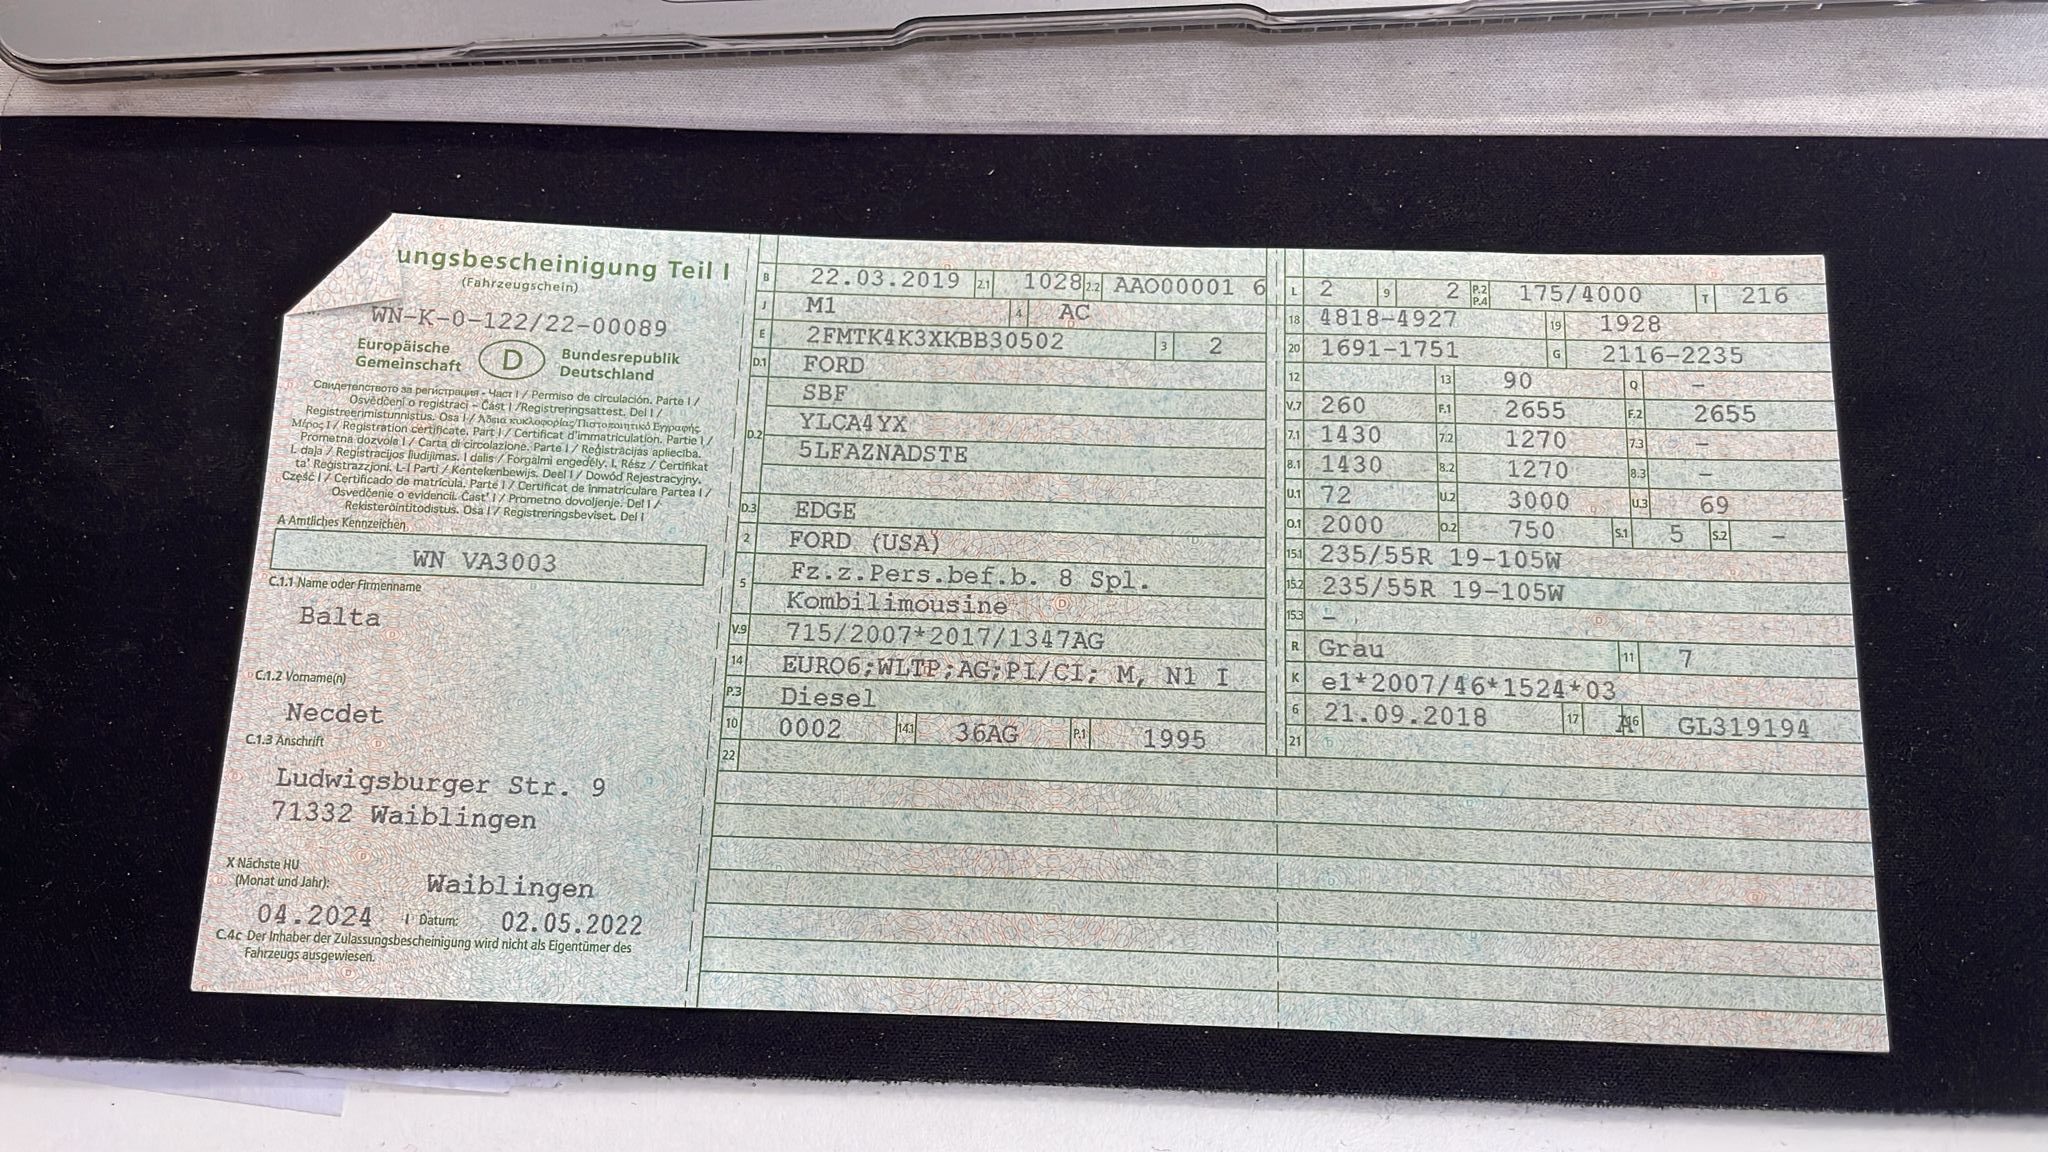 ungsbescheinigung Teil I
(Fahrzeugschein)
WN-K-0-122/22-00089
Europäische Gemeinschaft
D
Bundesrepublik Deutschland
Свидетелството за регистрация - Част I / Permiso de circulación. Parte I /
Osvědčení o registraci - Část I / Registreringsattest. Del I /
Registreerimistunnistus. Osa I / Άδεια κυκλοφορίας/Πιστοποιητικό Εγγραφής
Μέρος I / Registration certificate. Part I / Certificat d'immatriculation. Partie I /
Prometna dozvola I / Carta di circolazione. Parte I / Reģistrācijas apliecība.
I. daļa / Registracijos liudijimas. I dalis / Forgalmi engedély. I. Rész / Ċertifikat
ta' Reġistrazzjoni. L-I Parti / Kentekenbewijs. Deel I / Dowód Rejestracyjny.
Część I / Certificado de matrícula. Parte I / Certificat de înmatriculare Partea I /
Osvedčenie o evidencii. Časť I / Prometno dovoljenje. Del I /
Rekisteröintitodistus. Osa I / Registreringsbeviset. Del I
A Amtliches Kennzeichen
WN VA3003
C.1.1 Name oder Firmenname
Balta
C.1.2 Vorname(n)
Necdet
C.1.3 Anschrift
Ludwigsburger Str. 9
71332 Waiblingen
X Nächste HU
(Monat und Jahr):
Waiblingen
04.2024 I Datum: 02.05.2022
C.4c Der Inhaber der Zulassungsbescheinigung wird nicht als Eigentümer des
Fahrzeugs ausgewiesen.
B 22.03.2019 2.1 1028 2.2 AAO00001 6
J M1 4 AC
E 2FMTK4K3XKBB30502 3 2
D.1 FORD
SBF
D.2 YLCA4YX
5LFAZNADSTE
D.3 EDGE
2 FORD (USA)
5 Fz.z.Pers.bef.b. 8 Spl.
Kombilimousine
V.9 715/2007*2017/1347AG
14 EURO6;WLTP;AG;PI/CI; M, N1 I
P.3 Diesel
10 0002 14.1 36AG P.1 1995
22
L 2 9 2 P.2 P.4 175/4000 T 216
18 4818-4927 19 1928
20 1691-1751 G 2116-2235
12 13 90 Q -
V.7 260 F.1 2655 F.2 2655
7.1 1430 7.2 1270 7.3 -
8.1 1430 8.2 1270 8.3 -
U.1 72 U.2 3000 U.3 69
O.1 2000 O.2 750 S.1 5 S.2 -
15.1 235/55R 19-105W
15.2 235/55R 19-105W
15.3 -
R Grau 11 7
K e1*2007/46*1524*03
6 21.09.2018 17 16 GL319194
21